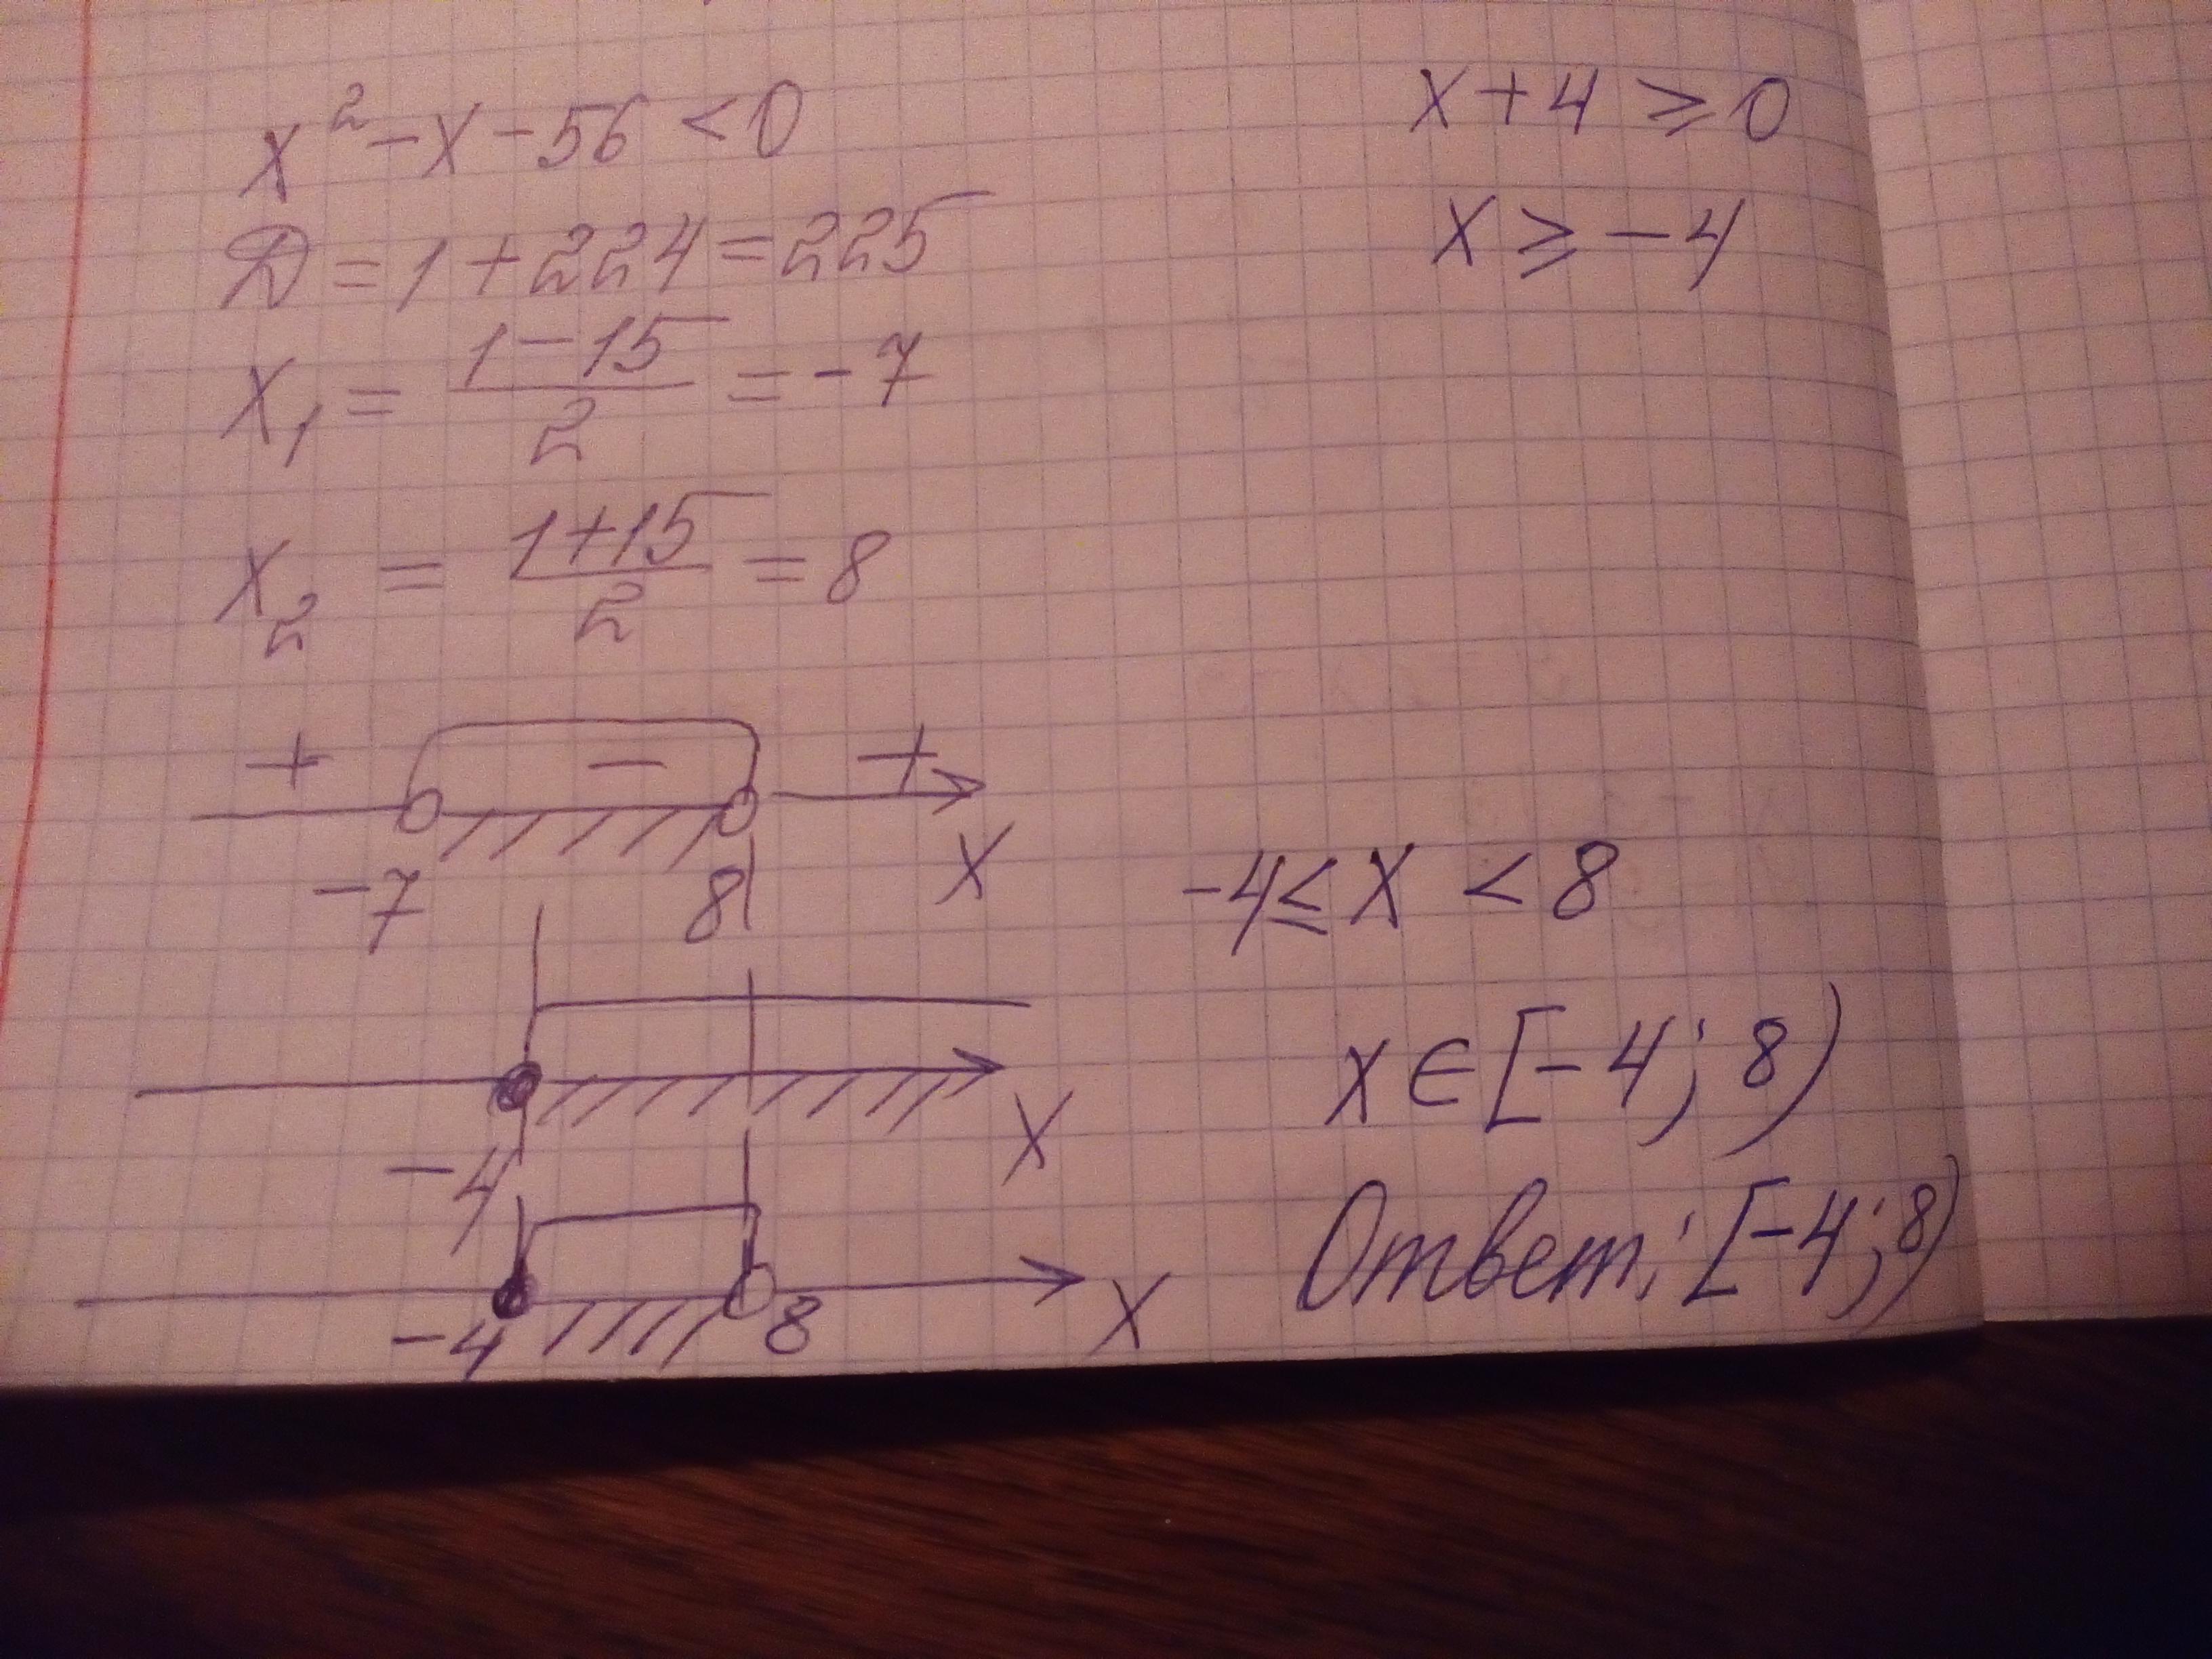 x² - x - 56 < 0
D = 1 + 224 = 225
x₁ = (1 - 15)/2 = -7
x₂ = (1 + 15)/2 = 8
+ - +
-7 8 x
-4 x
-4 8 x
x + 4 ⩾ 0
x ⩾ -4
-4 ≤ x < 8
x ∈ [-4; 8)
Ответ: [-4; 8)